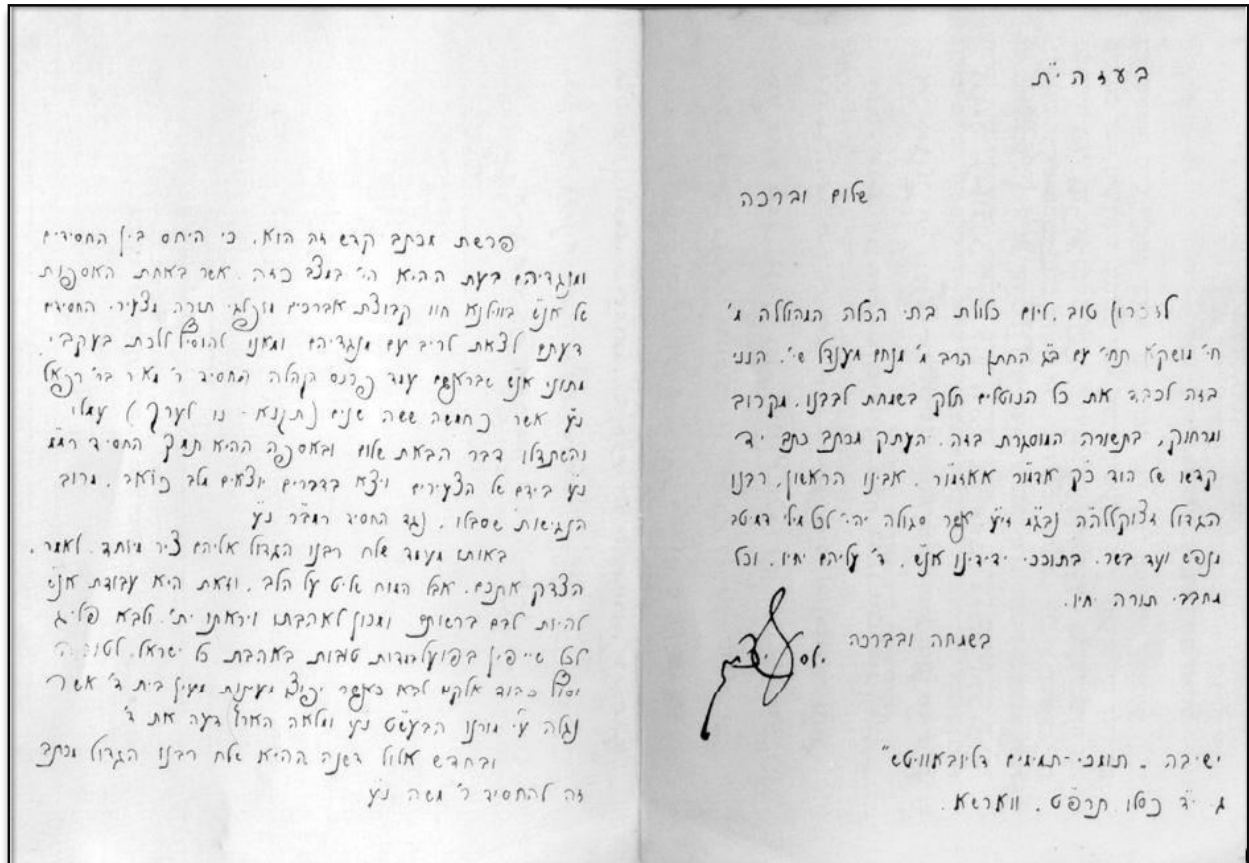 בעזהי״ת
שלום וברכה
לזכרון טוב, ליום כלולת בתי הכלה המהוללה מ׳
חי׳ מושקא תחי׳ עם ב״ג החתן הרב מ׳ מנחם מענדל שי׳, הנני
בזה לכבד את כל הנוטלים חלק בשמחת לבבנו, מקרוב
ומרחוק, בתשורה המוסגרת בזה, העתק מכתב כתב יד
קדשו של הוד כ״ק אדמו״ר אאזמו״ר, אבינו הראשון, רבנו
הגדול זצוקללה״ה נבג״מ זי״ע אשר סגולה יהי׳ לכל מילי דמיטב
מנפש ועד בשר, בתוככי ידידינו אנ״ש, ד׳ עליהם יחיו, וכל
מחבבי תורה יחיו.
בשמחה ובברכה
ישיבה ״תומכי-תמימים דליובאוויטש״
ג׳ י״ד כסלו תרפ״ט, ווארשא.
פרשת מכתב קדש זה הוא, כי היחס בין החסידים
ומנגדיהם בעת ההיא הי׳ במצב כזה, אשר באחת האספות
של אנ״ש בווילנא חוו קבוצת אברכים מופלגי תורה מצעירי החסידים
דעתם לצאת לריב עם מנגדיהם ומאנו להוסיף ללכת בעקבי
מתוני אנ״ש שבראשם עמד פרנס הקהלה החסיד ר׳ מאיר בר׳ רפאל
נ״ע אשר כחמשה ששה שנים (תקנא - נו לערך) עמלו
והשתדלו דבר הבאת שלום ובאספה ההיא תמך החסיד רמ״מ
נ״ע בידם של הצעירים ויצא בדברים יוצאים מלב כואב, מרוב
הנגישות שסבלו, נגד החסיד רמב״ר נ״ע
באותו מעמד שלח רבנו הגדול אליהם ציר מיוחד, לאמר,
הצדק אתכם, אבל המוח שליט על הלב, וזאת היא עבודת אנ״ש
להיות לבם ברשותם ומכון לאהבתו ויראתו ית׳, ולבא פליג
לכל שייפין בפועל מדות טובות באהבת כל ישראל, לטובה
וסוף כבוד אלקים לבא כאשר יפוצו מעינות מעין בית ד׳ אשר
נגלה ע״י מורנו הבעש״ט נ״ע ומלאה הארץ דעה את ד׳
ובחדש אלול דשנה ההיא שלח רבנו הגדול מכתב
זה להחסיד ר׳ משה נ״ע